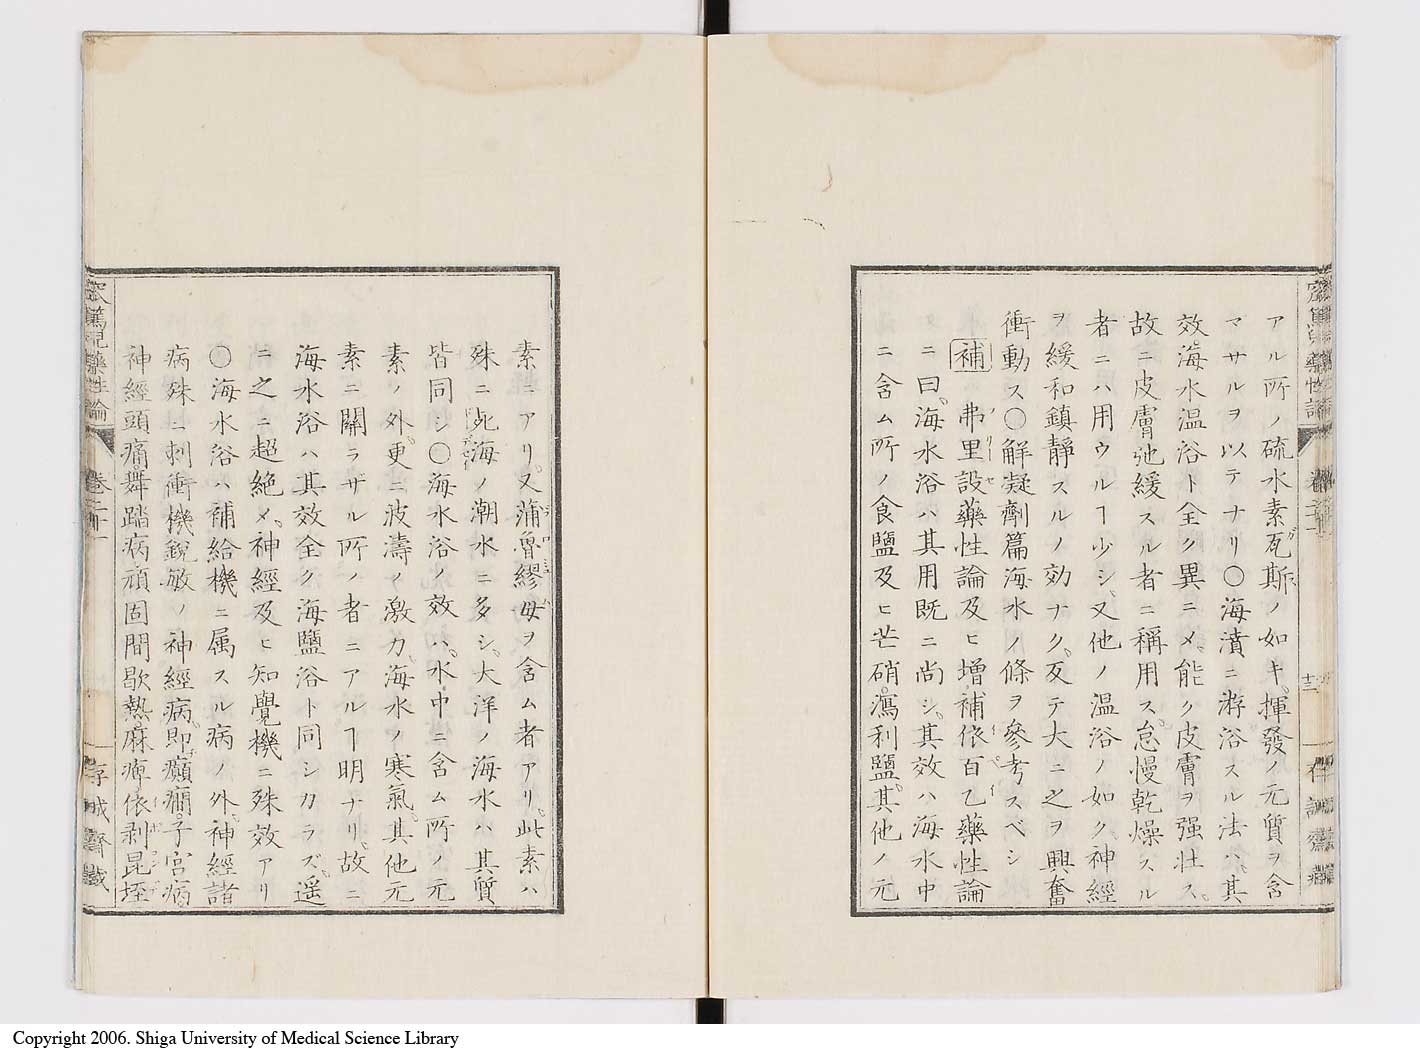 アル所ノ硫水素瓦斯ノ如キ揮發ノ元質ヲ含
マサルヲ以テナリ〇海濱ニ游浴スル法ハ其
效海水温浴ト全ク異ニメ能ク皮膚ヲ强壯ス
故ニ皮膚弛緩スル者ニ稱用ス怠慢乾燥スル
者ニハ用ウルヿ少シ又他ノ温浴ノ如ク神經
ヲ緩和鎭靜スルノ効ナク反テ大ニ之ヲ興奮
衝動ス〇解凝劑篇海水ノ條ヲ參考スベシ
補 弗里設藥性論及ヒ增補依百乙藥性論
ニ曰海水浴ハ其用既ニ尚シ其效ハ海水中
ニ含ム所ノ食鹽及ヒ芒硝瀉利鹽其他ノ元
素ニアリ又蒲魯繆母ヲ含ム者アリ此素ハ
殊ニ死海ノ潮水ニ多シ大洋ノ海水ハ其質
皆同シ〇海水浴ノ效ハ水中ニ含ム所ノ元
素ノ外更ニ波濤ノ激力海水ノ寒氣其他元
素ニ關ラザル所ノ者ニアルヿ明ナリ故ニ
海水浴ハ其效全ク海鹽浴ト同シカラズ遥
ニ之ニ超絶メ神經及ヒ知覺機ニ殊效アリ
〇海水浴ハ補給機ニ属スル病ノ外神經諸
病殊ニ刺衝機銳敏ノ神經病即癲癇子宮病
神經頭痛舞踏病頑固間歇熱麻痺依剥昆垤
藥性論
卷二十一
存誠齋藏
Copyright 2006. Shiga University of Medical Science Library